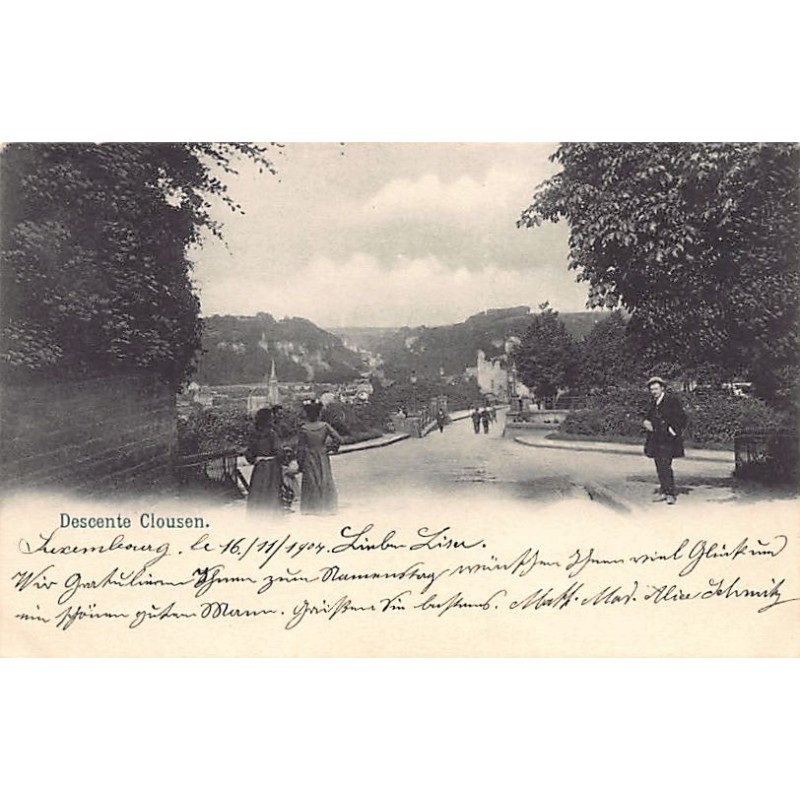 Descente Clousen.
Luxembourg, le 16/11/1904. Liebe Lise.
Wir Gratulieren Ihnen zum Namenstag wünschen Ihnen viel Glück und
ein schönen guten Mann. Grüßen Sie bestens. Math. Mad. Alice Schmitz